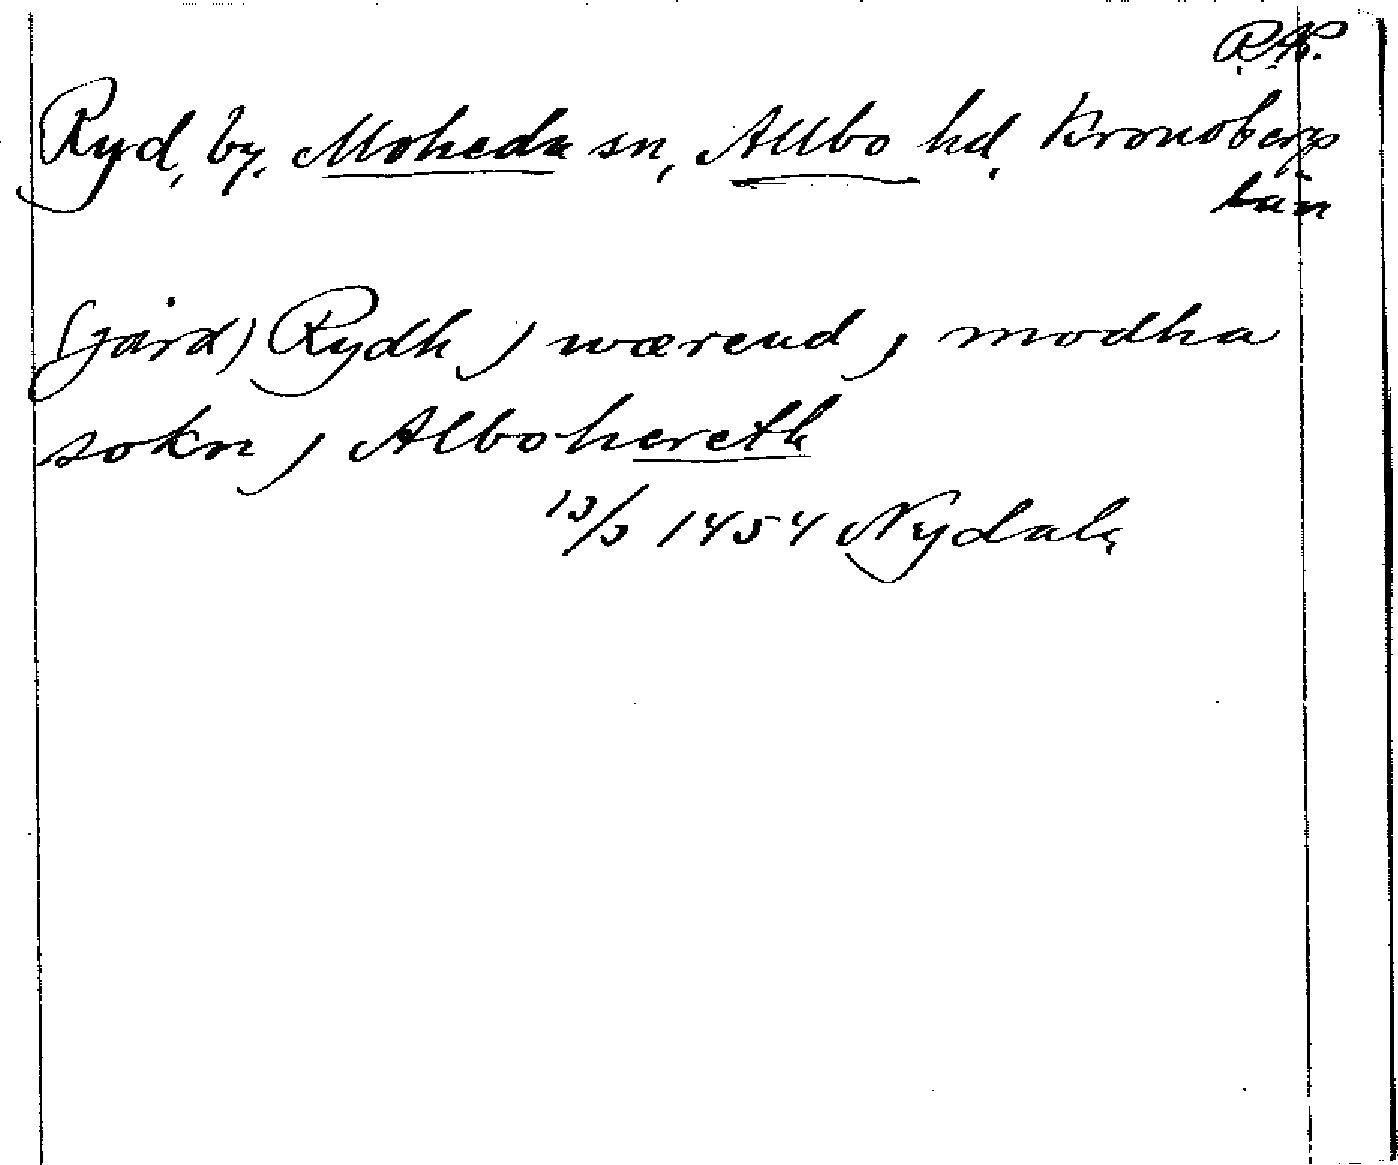 R.A.P.
Ryd, by, Moheda sn, Allbo hd, Kronobergs
län
(gård) Rydh j wærend, j modha
sokn j Albohereth
13/3 1454 Nydala